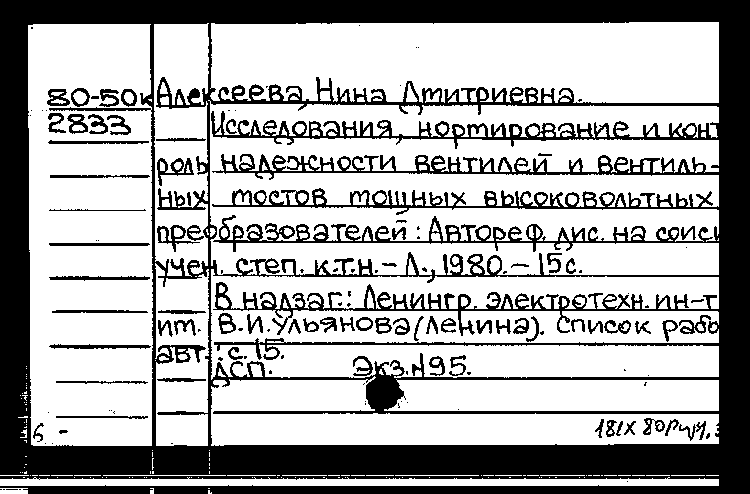 80-50к Алексеева, Нина Дмитриевна.
2833 Исследования, нормирование и конт
роль надежности вентилей и вентиль-
ных мостов мощных высоковольтных
преобразователей: Автореф. дис. на соиск
учен. степ. к.т.н. - Л., 1980. - 15 с.
В надзаг.: Ленингр. электротехн. ин-т
им. В.И.Ульянова (Ленина). Список рабо
авт.: с. 15.
ДСП. Экз. №95.
6 -
18IX 80